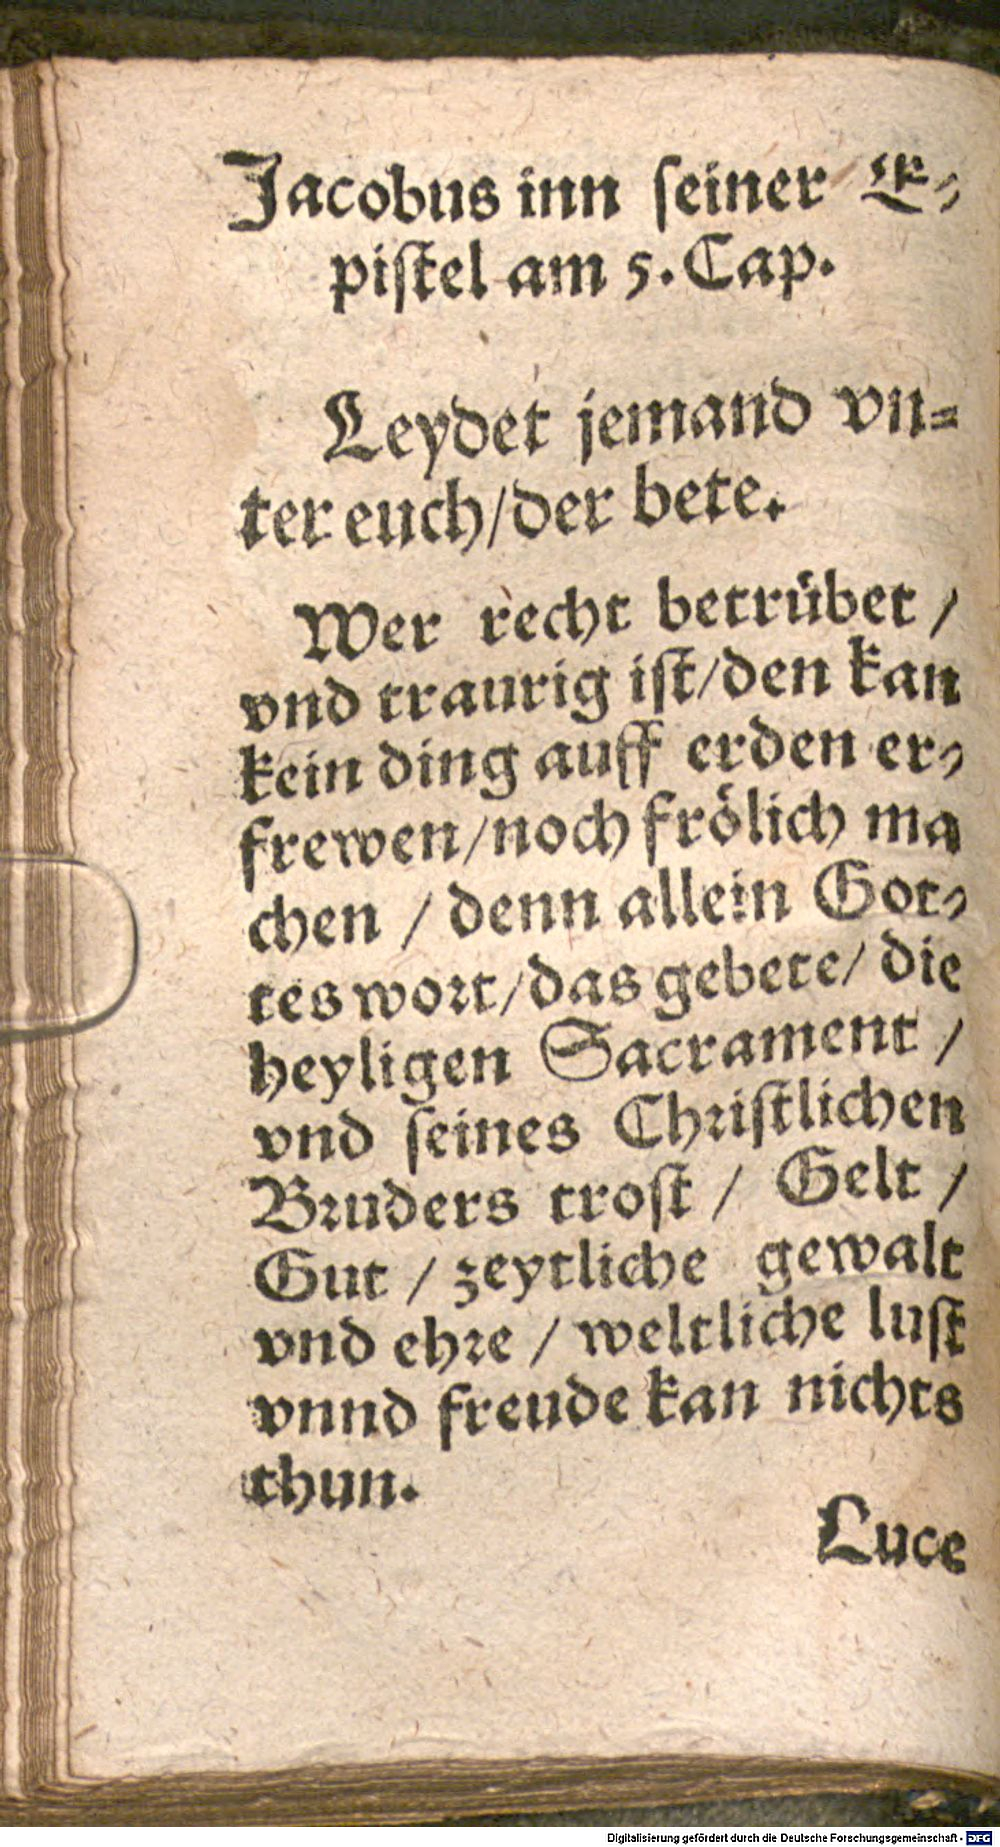 Jacobus inn ſeiner E⸗
piſtel am 5. Cap.
Leydet jemand vn⸗
ter euch/der bete.
Wer recht betrübet /
vnd traurig iſt/den kan
kein ding auff erden er⸗
frewen/noch frölich ma
chen / denn allein Got⸗
tes woꝛt/das gebete/ die
heyligen Sacrament /
vnd ſeines Chꝛiſtlichen
Bꝛuders troſt / Gelt /
Gut / zeytliche gewalt
vnd ehꝛe / weltliche luſt
vnnd freude kan nichts
thun.
Luce
Digitalisierung gefördert durch die Deutsche Forschungsgemeinschaft - DFG